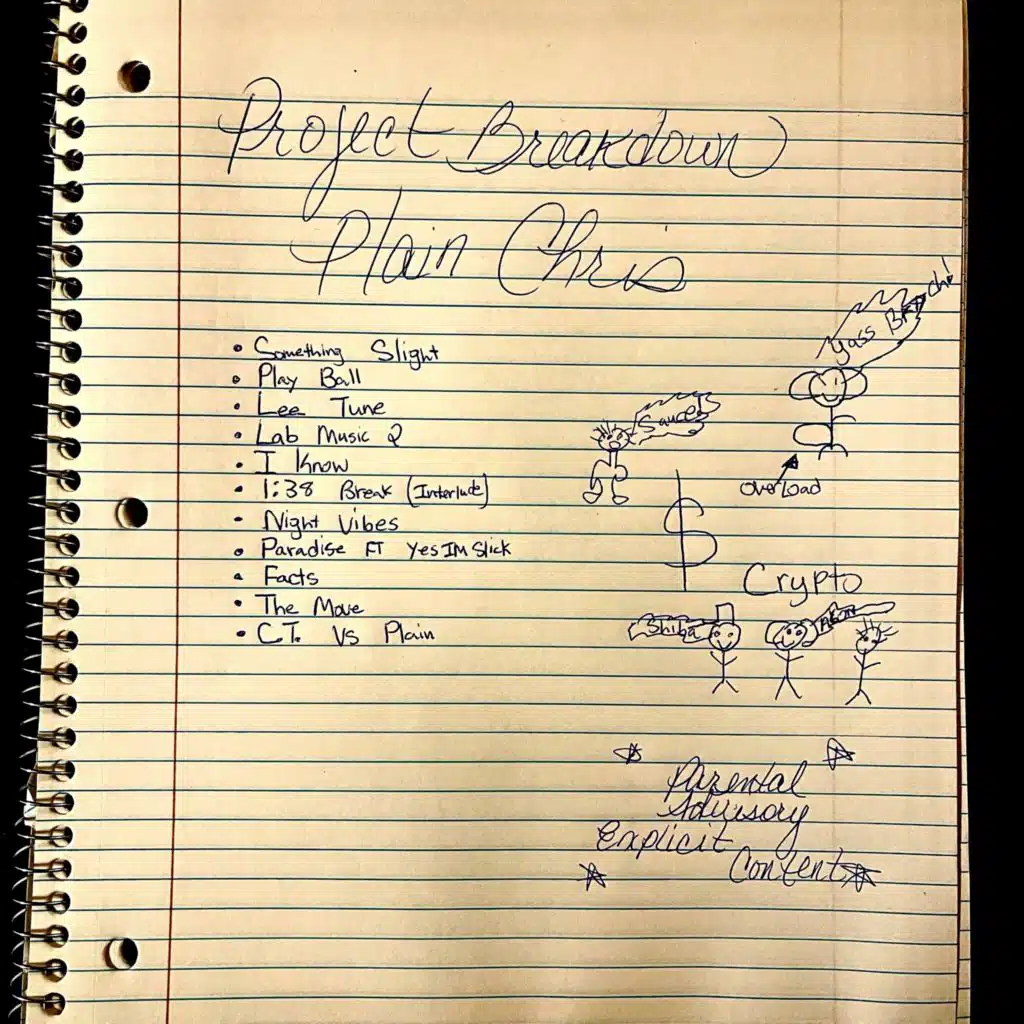 Project Breakdown
Plain Chris
• Something Slight
• Play Ball
• Lee Tune
• Lab Music 2
• I Know
• 1:38 Break (Interlude)
• Night Vibes
• Paradise FT YesIMSlick
• Facts
• The Move
• C.T. Vs Plain
Yass
Sauce!
overload
$
Crypto
Shiba
Parental
Advisory
Explicit
Content